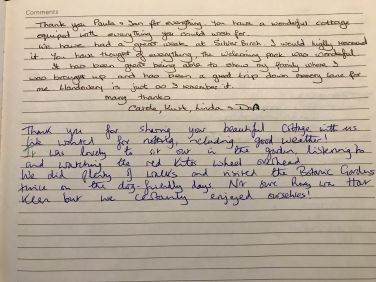 Comments
Thank you Paula & Ian for everything. You have a wonderful cottage
equiped with everything you could wish for.
We have had a great week at Silver Birch. I would highly recommend
it. You have thought of everything. The Welcoming pack was wonderful
It has been great being able to show my family where I
was brought up and has been a good trip down memory lane for
me. Llandovery is just as I remember it.
many thanks
Carole, Kurt, Linda &
Thank you for sharing your beautiful Cottage with us
We wanted for nothing, including good weather!
It was lovely to sit out in the garden, listening to
and watching the red kites wheel overhead
We did plenty of walks and visited the Botanic Gardens
twice on the dog-friendly days. Not sure was that
keen but we certainly enjoyed ourselves!